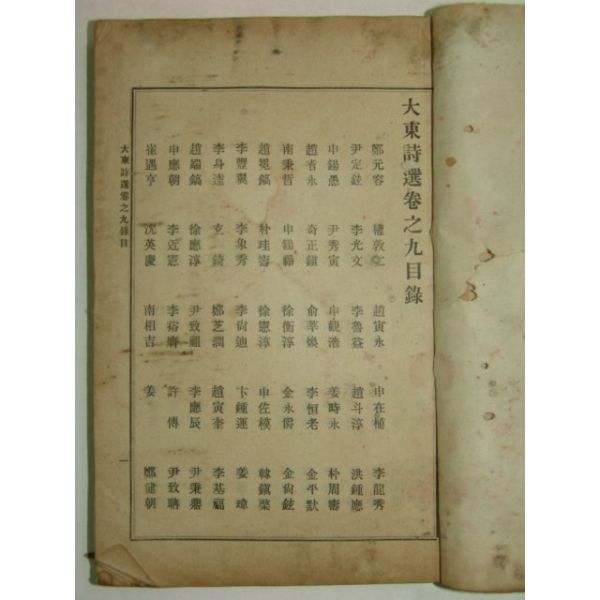 大東詩選卷之九目錄
鄭元容 權敦仁 趙寅永 申在植 李龍秀
尹定鉉 李光文 李魯益 趙斗淳 洪鍾應
申錫愚 尹秀寅 申觀浩 姜時永 朴周壽
趙省永 奇正鎭 俞莘煥 李恒老 金平默
南秉哲 申錫禧 徐衡淳 金永爵 金尙鉉
趙冕鎬 朴珪壽 徐憲淳 申佐模 韓鎭棨
李豐翼 李象秀 李尙迪 卞鍾運 姜瑋
李身逵 玄錡 鄭芝潤 趙寅奎 李基福
趙端鎬 徐應淳 尹致祖 李應辰 尹秉鼎
申應朝 李近憲 李裕膺 許傳 尹致聃
崔遇亨 沈英慶 南相吉 姜 鄭健朝
大東詩選卷之九錄目
一